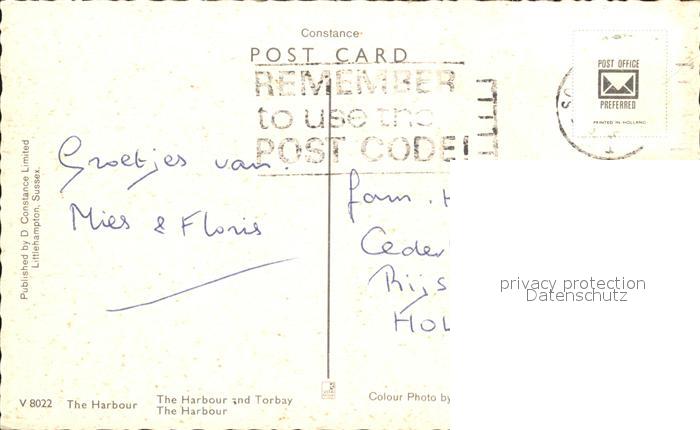 Constance
POST CARD
REMEMBER
to use the
POST CODE!
POST OFFICE
PREFERRED
PRINTED IN HOLLAND
Groetjes van.
Mies & Floris
fam. H
Ceder
Rijs
HOL
privacy protection
Datenschutz
Published by D Constance Limited
Littlehampton, Sussex.
V 8022 The Harbour
The Harbour and Torbay
The Harbour
Colour Photo by